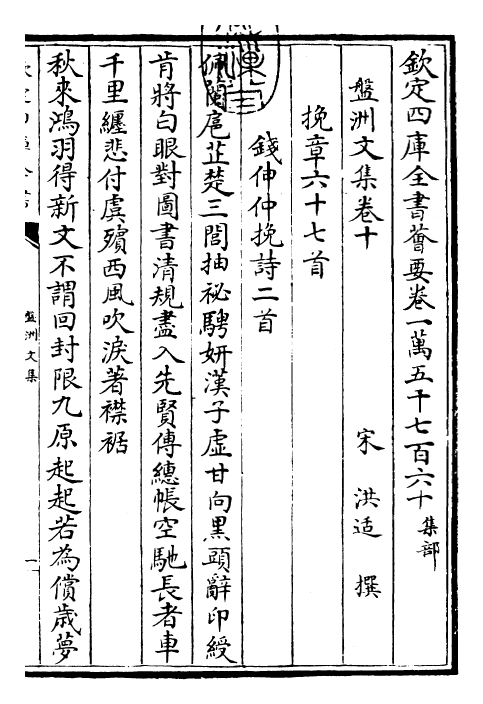 欽定四庫全書薈要卷一萬五千七百六十 集部
盤洲文集卷十 宋 洪适 撰
挽章六十七首
錢伸仲挽詩二首
佩蘭扈芷楚三閭抽祕騁妍漢子虛甘向黒頭辭印綬
肯將白眼對圖書清規盡入先賢傳繐帳空馳長者車
千里纒悲付虞殯西風吹淚著襟裾
秋來鴻羽得新文不謂回封限九原起起若為償歲夢
盤洲文集
一